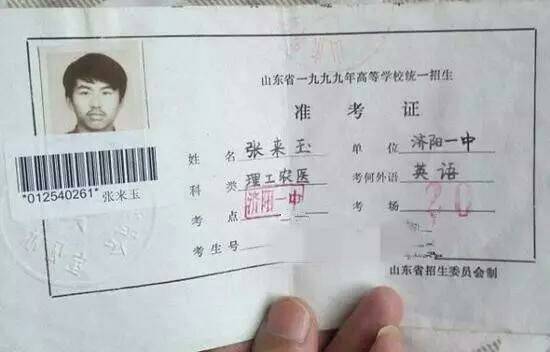 山东省一九九九年高等学校统一招生
准考证
姓名 张来玉 单位 济阳一中
科类 理工农医 考何外语 英语
考点 济阳一中 考场
考生号
*012540261* 张来玉
山东省招生委员会制